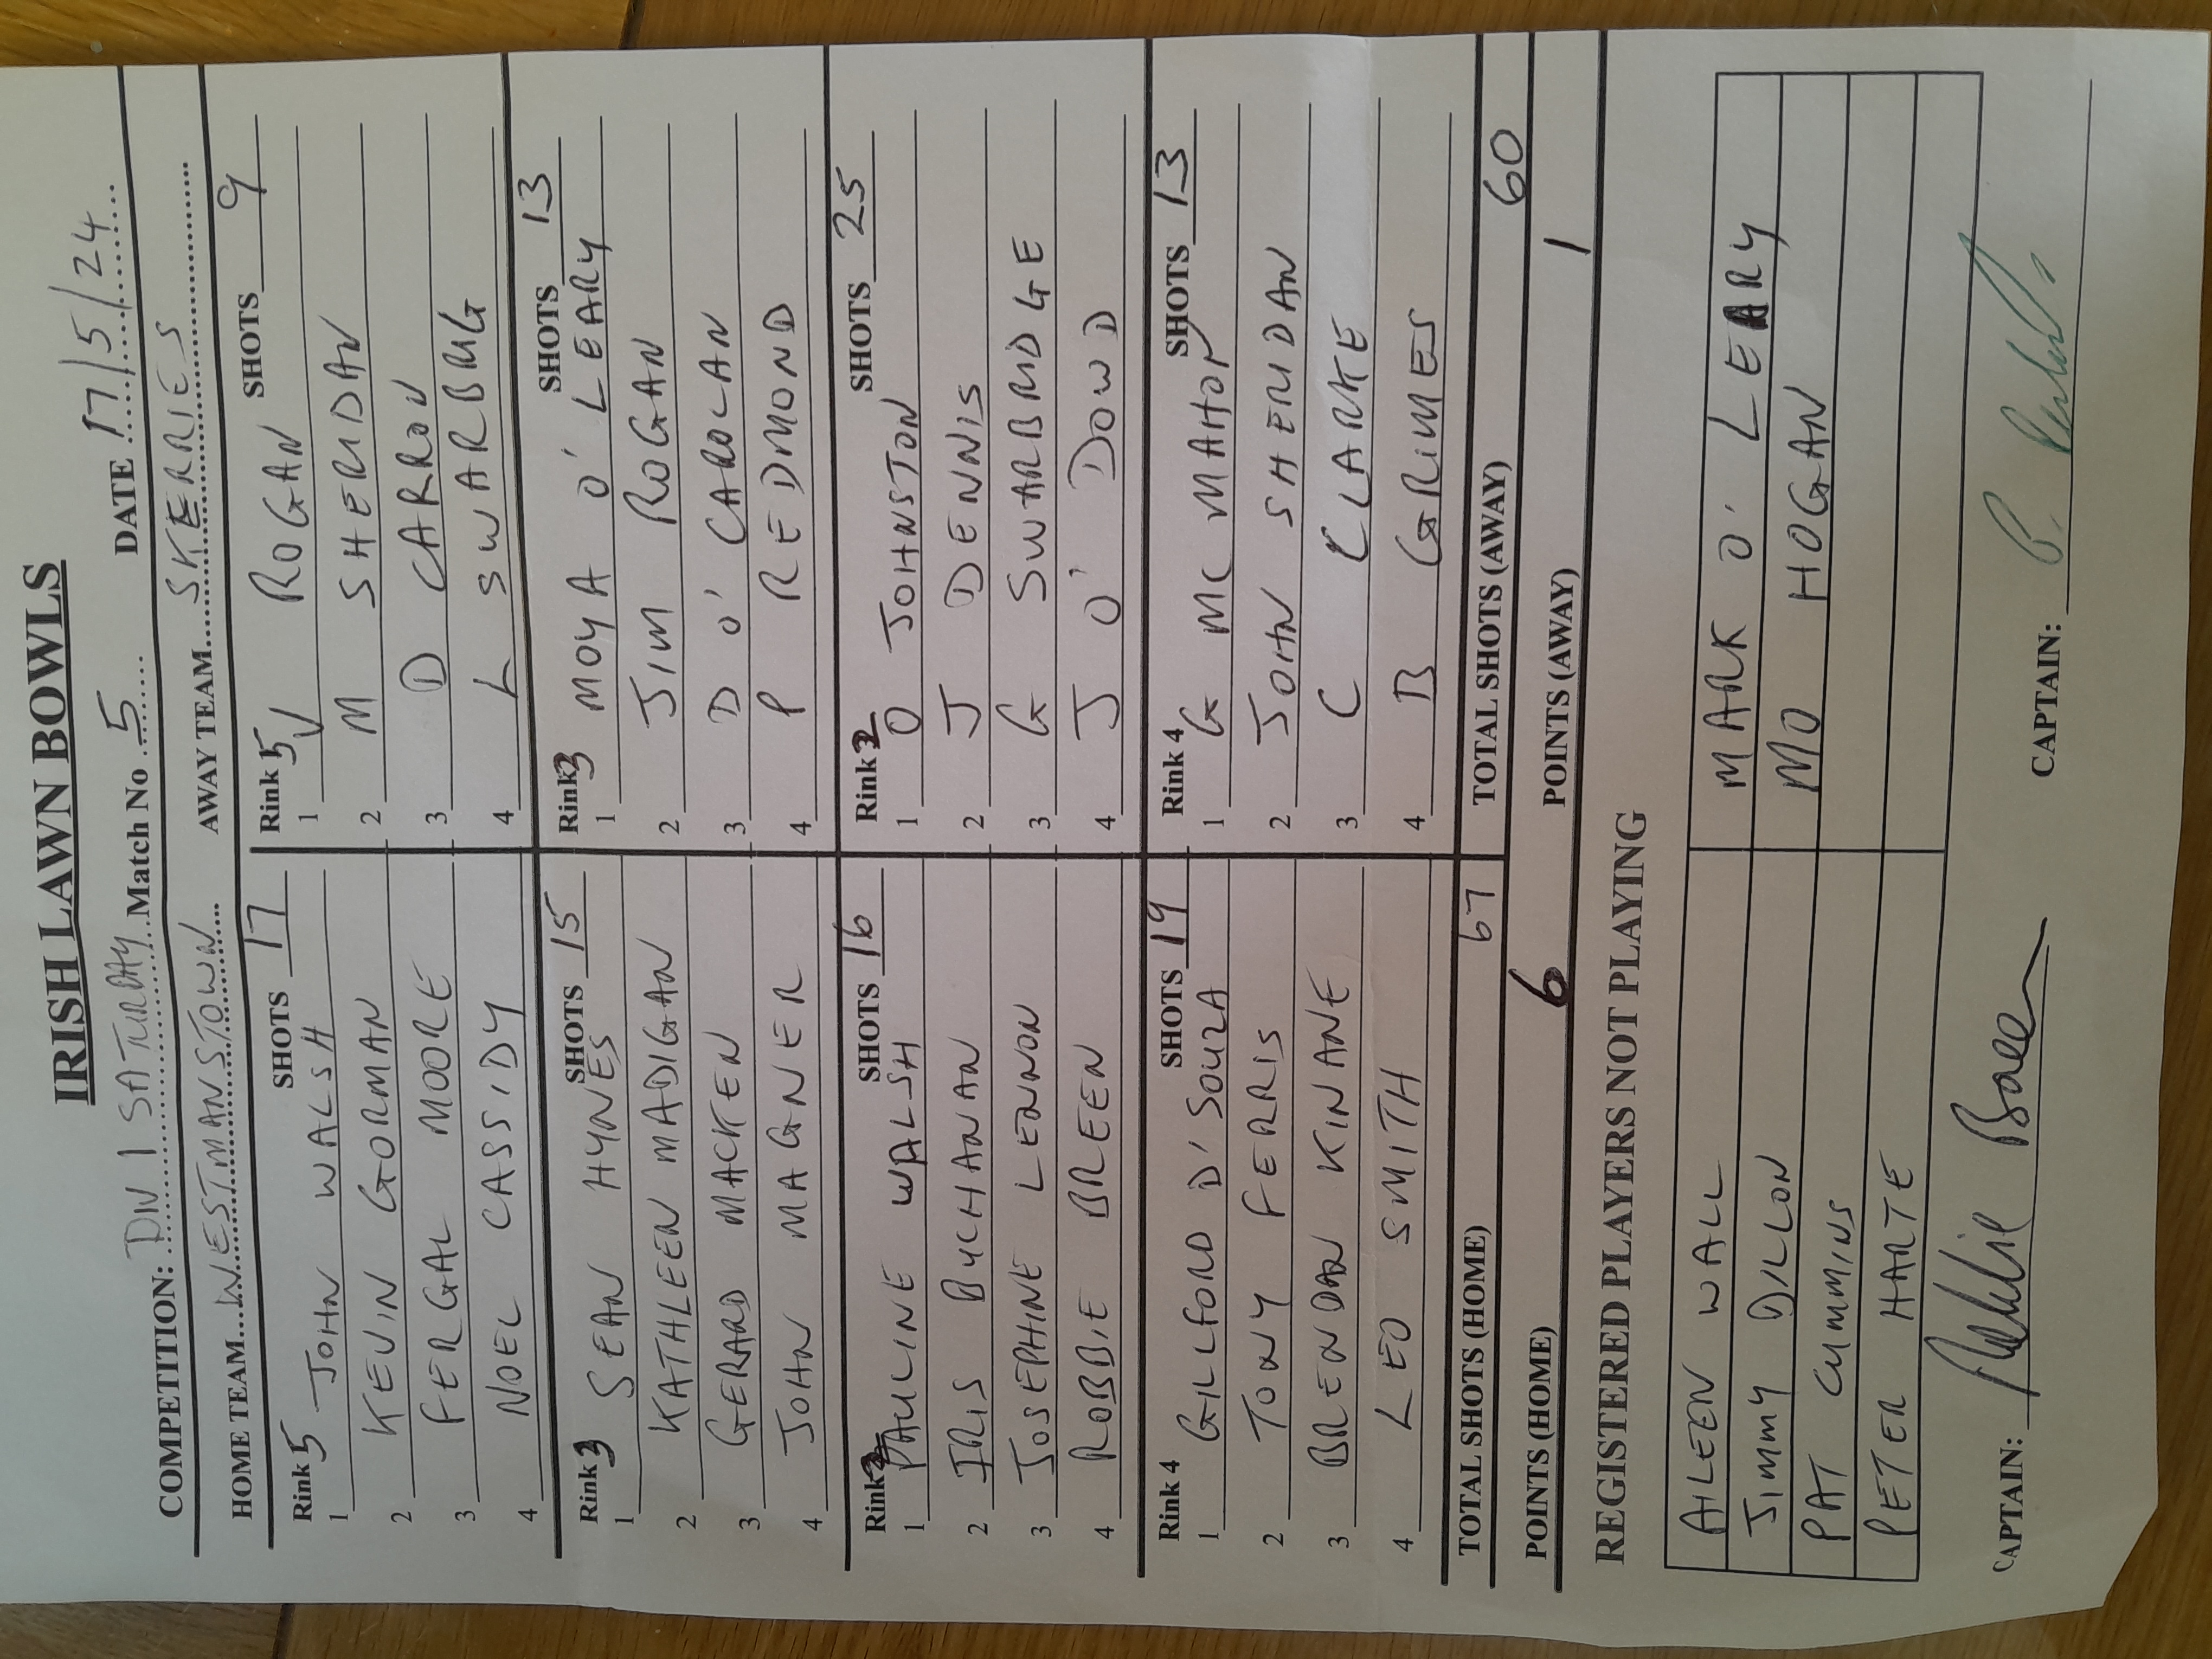 IRISH LAWN BOWLS
COMPETITION: DIV 1 SATURDAY Match No 5 DATE 17/5/24
HOME TEAM WESTMANSTOWN AWAY TEAM SKERRIES
Rink 5 SHOTS 17 Rink 5 SHOTS 9
1 JOHN WALSH 1 V ROGAN
2 KEVIN GORMAN 2 M SHERIDAN
3 FERGAL MOORE 3 D CARRON
4 NOEL CASSIDY 4 L SWARBRIG
Rink 3 SHOTS 15 Rink 3 SHOTS 13
1 SEAN HYNES 1 MOYA O'LEARY
2 KATHLEEN MADIGAN 2 JIM ROGAN
3 GERARD MACKEN 3 D O'CAROLAN
4 JOHN MAGNER 4 P REDMOND
Rink 2 SHOTS 16 Rink 2 SHOTS 25
1 PAULINE WALSH 1 O JOHNSTON
2 IRIS BUCHANAN 2 J DENNIS
3 JOSEPHINE LENNON 3 G SWARBRIDGE
4 ROBBIE BREEN 4 J O'DOWD
Rink 4 SHOTS 19 Rink 4 SHOTS 13
1 GILLFORD D'SOUZA 1 G MC MAHON
2 TONY FERRIS 2 JOHN SHERIDAN
3 BRENDAN KINANE 3 C CLARKE
4 LEO SMITH 4 B GRIMES
TOTAL SHOTS (HOME) 67 TOTAL SHOTS (AWAY) 60
POINTS (HOME) 6 POINTS (AWAY) 1
REGISTERED PLAYERS NOT PLAYING
AILEEN WALL MARK O'LEARY
JIMMY DILLON MO HOGAN
PAT CUMMINS
PETER HARTE
CAPTAIN: CAPTAIN: